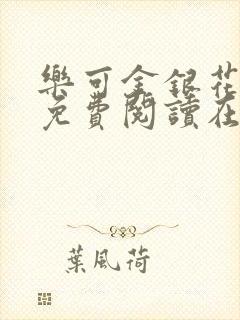 樂可金銀花
免費閱讀在
葉風荷